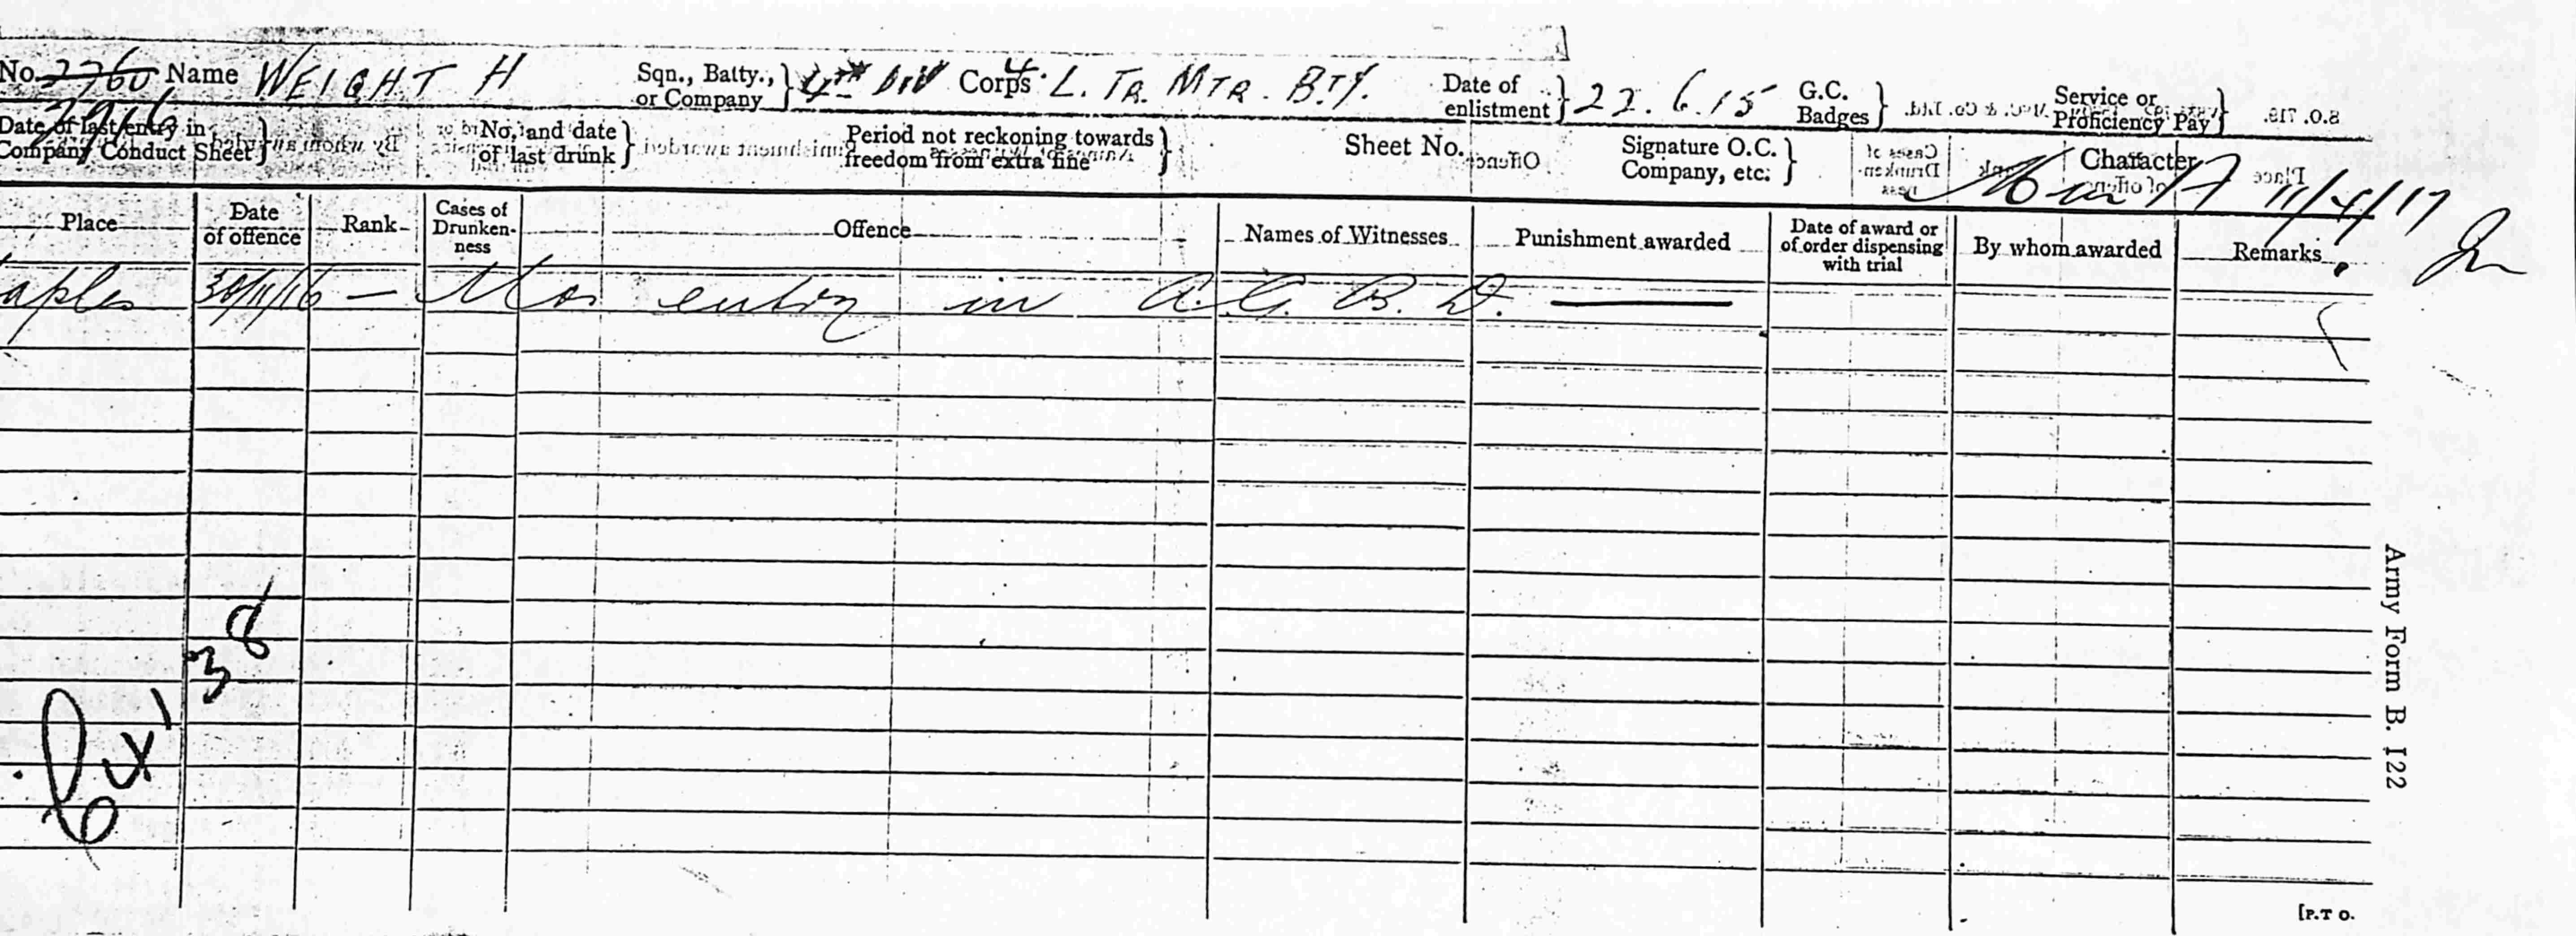 No. 2760 Name WEIGHT H Sqn., Batty., or Company } 4th DIV Corps 4 L. TR. MTR. BTY. Date of enlistment } 22.6.15 G.C. Badges } Service or Proficiency Pay }
2916
Date of last entry in Company Conduct Sheet } No. and date of last drunk } Period not reckoning towards freedom from extra fine } Sheet No. Signature O.C. Company, etc. } Character
11/4/17
Place Date of offence Rank Cases of Drunken-ness Offence Names of Witnesses Punishment awarded Date of award or of order dispensing with trial By whom awarded Remarks
aples 30/11/16 — No entry in A. G. B. D. —
38
Army Form B. 122
[P.T O.